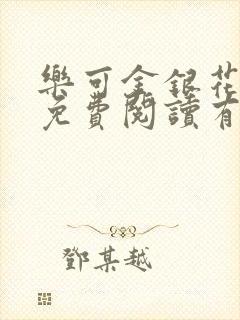 樂可金銀花
免費閱讀有
鄧某越